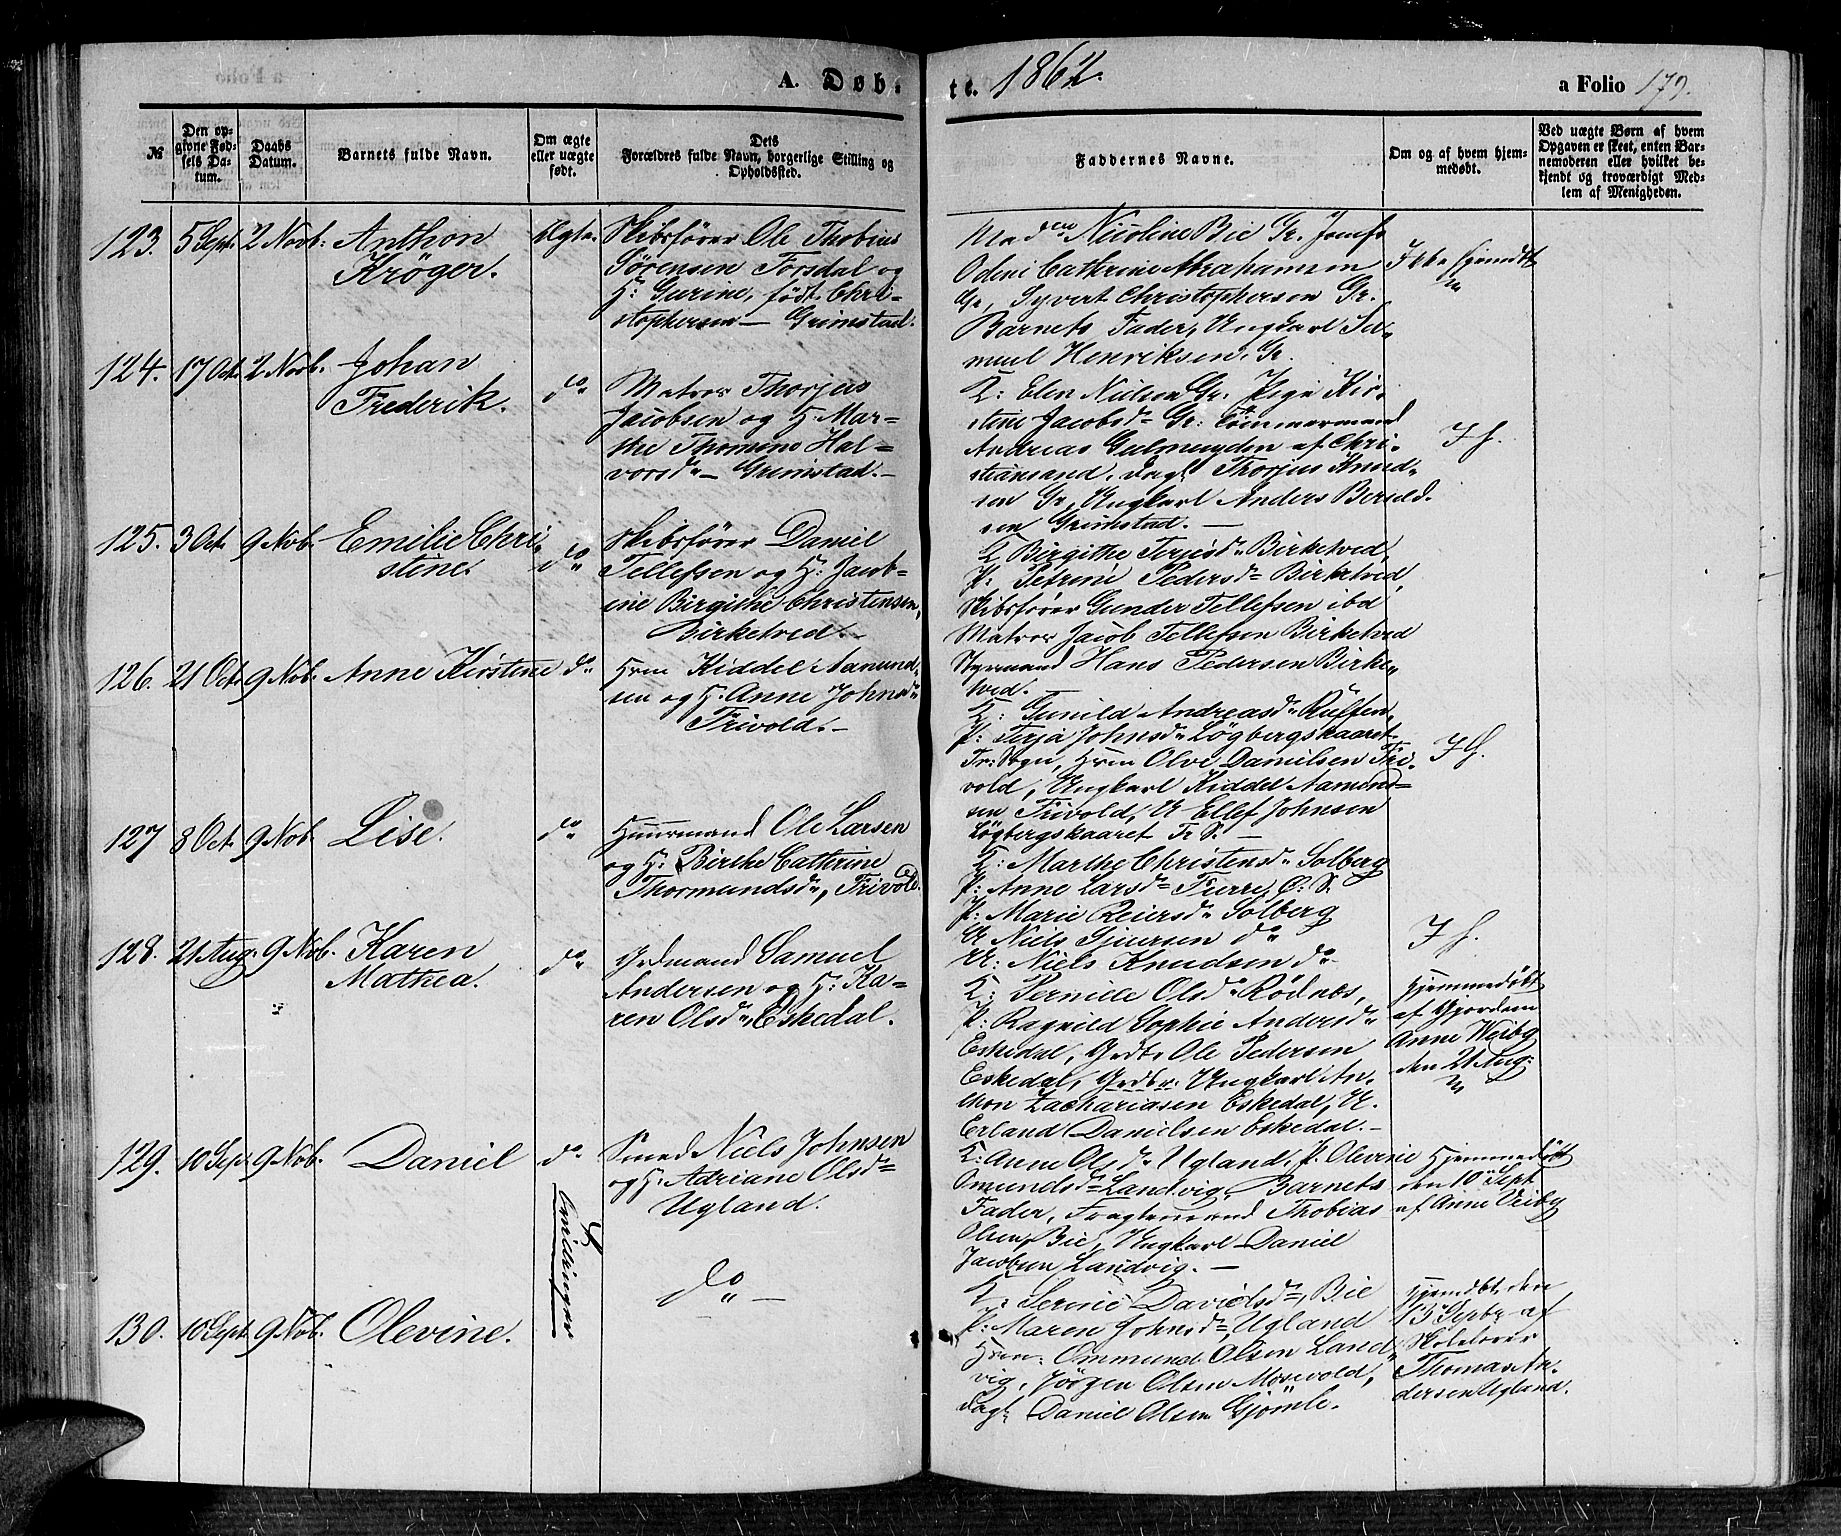 A. Døb-
te. 1862.
a Folio 179.
№
Den op-
givne Fød-
sels Da-
tum.
Daabs
Datum.
Barnets fulde Navn.
Om ægte
eller uægte
født.
Dets
Forældres fulde Navn, borgerlige Stilling og
Opholdssted.
Faddernes Navne.
Om og af hvem hjem-
medøbt.
Ved uægte Børn af hvem
Opgaven er skeet, enten Bar-
nemoderen eller hvilket be-
kjendt og troværdigt Med-
lem af Menigheden.
123. 5 Sept. 2 Novb: Anthon
Krøger.
Ægte.
Skibsfører Ole Thobias
Sørensen Forsdal og
H: Gurine, født Chri-
stophersen — Grimstad.
Mad Nicoline Bie Gr. Jomfr
Odeni Cathrine Abrahamsen
Gr, Syvert Christophersen Gr.
Barnets Fader, Ungkarl Sa-
muel Henriksen, Gr.
Ikke hjemdt
124. 17 Oct. 2 Novb. Johan
Frederik.
do
Matros Thorjus
Jacobsen og H: Mar-
the Thomine Hal-
vorsd — Grimstad. —
K: Elen Nielsen Gr. Pige Kir-
stine Jacobsd Gr: Tömmermand
Andreas Gulmuyden af Chri-
stiansand, Dagl Thorjus Knud-
sen Gr, Ungkarl Anders Beruld-
sen Grimstad. —
I h.
125. 3 Oct. 9 Nob. Emilie Chri-
stine.
do
Skibsfører Daniel
Tellefsen og H: Jacob-
ine Birgithe Christensen,
Birketved. —
K Birgithe Terjesd Birketved,
P: Petrine Pedersd Birketved,
Skibsfører Gunder Tellefsen ibd
Matros Jacob Tellefsen Birketved
Styrmand Hans Pedersen Birke-
tved.
126. 21 Oct. 9 Nob. Anne Kirstine do
Hrm Kiddel Aamund-
sen og H. Anne Johnsd
Trivold. —
K: Gunild Andreasd Rüffen,
P: Terja Johnsd Løgbergskaaret
Tr: Sogn, Hrm Olve Danielsen Tri-
vold, Ungkarl Kiddel Aamund-
sen Trivold, U Ellef Johnsen
Løgbergskaaret Tr S. —
I h.
127 8 Oct. 9 Nob. Lise.
do
Huusmand Ole Larsen
og H: Birthe Cathrine
Thormundsd, Trivold.
K: Marthe Christensd Solberg
P: Anne Larsd Fierre, Ø. S.
P: Marie Reiersd Solberg
U Niels Gjeursen do
U: Niels Knudsen do
I h.
128. 21 Aug. 9 Nob. Karen
Mathea.
do
Grdmand Samuel
Andersen og H: Ka-
ren Olsd, Eskedal.
K: Pernille Olsd Rødnes,
P: Ragnild Sophie Andersd
Eskedal, Grdbr Ole Pedersen
Eskedal, Grdbr. Ungkarl An-
thon Zachariasen Eskedal, U.
Erland Danielsen Eskedal. —
Hjemmedøbt
af Gjordem
Anne Weiby
den 21 Aug:
129. 10 Sep. 9 Nob. Daniel
do
Smed Niels Johnsen
og H. Adriane Olsd
Ugland.
K: Anne Olsd Ugland. P. Olevine
Omundsd Landvig, Barnets
Fader, Fragtemand Thobias
Olsen, Bie, Ungkarl Daniel
Jacobsen Landvig. —
Hjemmedøbt
den 10 Sept
af Anne Veiby
Tvillinger
130. 10 Sept. 9 Nob. Olevine.
do —
K: Serine Davidsd, Bie
P: Maren Johnsd, Ugland
Hrm: Ommund Olsen Land-
vig, Jørgen Olsen Mosevold,
Dagl Daniel Olsen Gjömle.
Hjemdbt den
13 Septbr af
Skolelærer
Thomas An-
dersen Ugland.